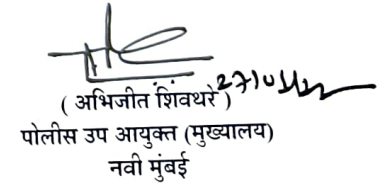 ( अभिजीत शिंवथरे )
पोलीस उप आयुक्त (मुख्यालय)
नवी मुंबई